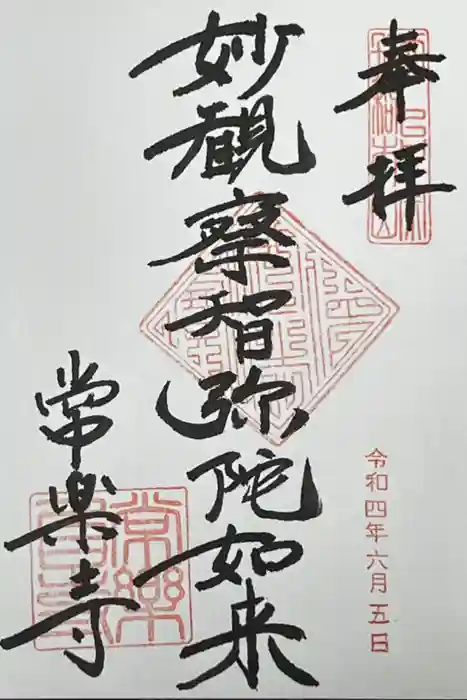 奉拝
妙観察智弥陀如来
令和四年六月五日
常楽寺
常樂